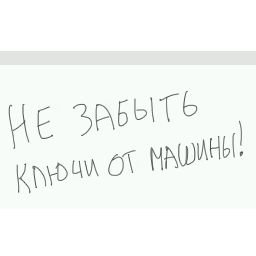 НЕ ЗАБЫТЬ
КЛЮЧИ ОТ МАШИНЫ!